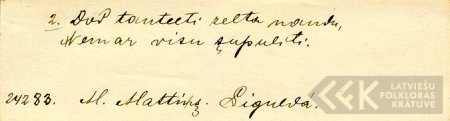 2. Dod tautieti zelta naudu,
Nemar visu
24283. M. Mattīss. Siguldā.
LATVIEŠU
FOLKLORAS
KRĀTUVE